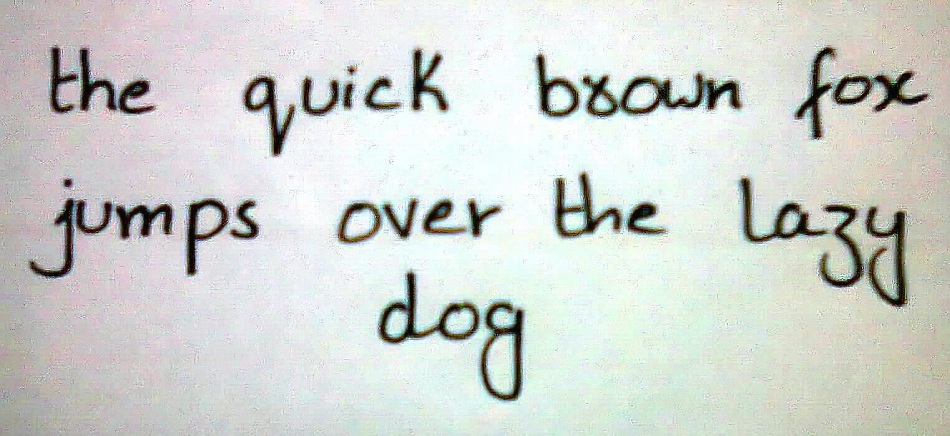 the quick brown fox
jumps over the lazy
dog